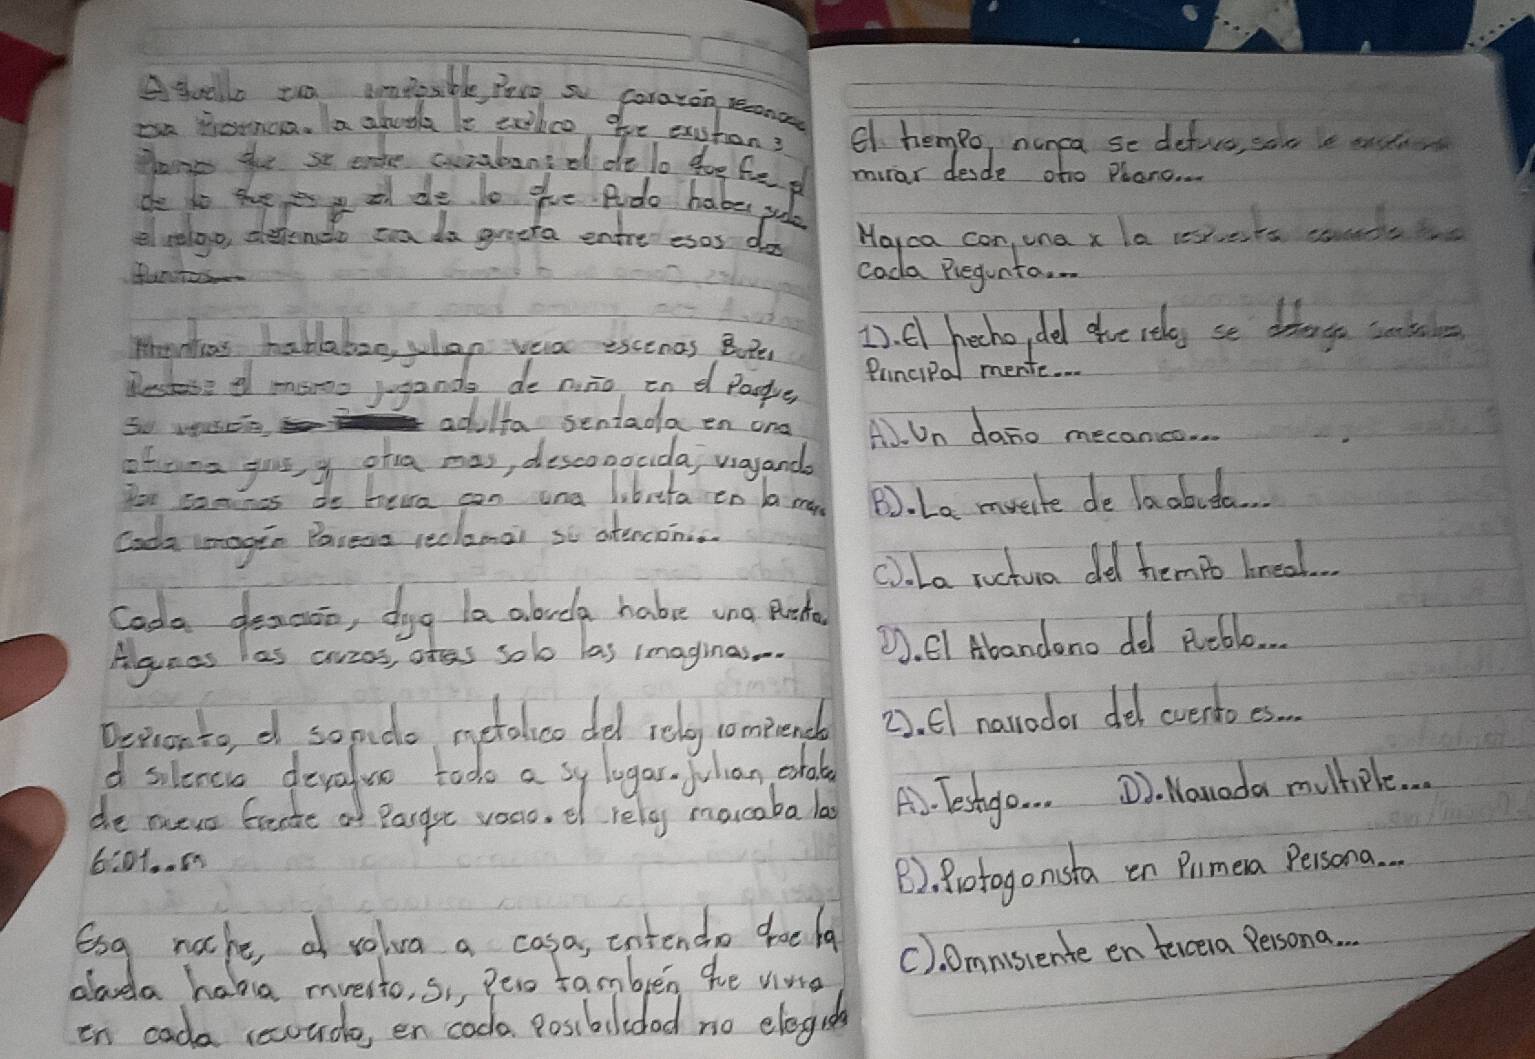 Aquello era imposible, Pero su corazón reconoce
esa Presencia. la abuela le explico, que existian 3
que se entre cruzaban: el de lo que fue, el
de lo que es y el de lo que Pudo haber sido
el reloj, detenido era la grieta entre esos dos
Mientras hablaban, julian veia escenas super
Puestas: el mismo jugando de niño en el Parque,
su versión adulta sentada en una
oficina gris, y otra mas, desconocida, viajando
Por caminos de tierra con una libreta en la mano
Cada imagen Parecia reclamar su atención...
Cada desición, dijo la abuela habre una Puerta.
Algunas las cruzas, otras solo las imaginas...
De Pronto, el sonido metalico del reloj rompiendo
el silencio devolvio todo a sy lugar. Julian estaba
de nuevo frente al Parque vacio. el reloj marcaba las
6:01..
Esa noche, al volver a casa, entendio que la
abuela habia muerto, si, Pero tambien que vivia
en cada recuerdo, en cada Posibilidad no elegida
El tiempo, nunca se detuvo, solo le
mirar desde otro Plano...
Marca con, una x la respuesta
cada Pregunta...
1). El hecho, del que reloj se
Principal mente...
A). Un daño mecanico...
B). La muerte de la abuela...
C). La ructura del tiempo lineal...
D). El Abandono del Pueblo...
2). El narrador del cuento es...
A). Testigo... D). Narrada multiple...
B). Protagonista en Primera Persona...
C). Omnisiente en tercera Persona...